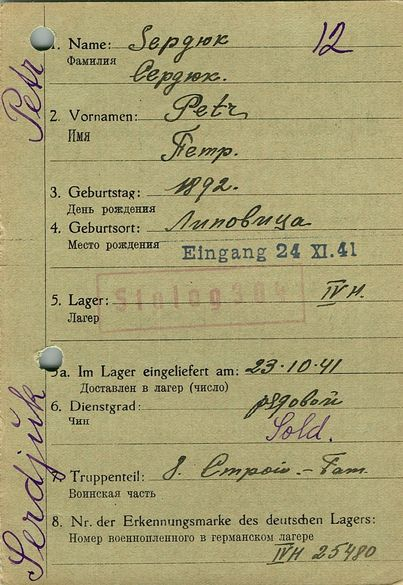 Petr
Serdjuk
12
1. Name: Зердюк
Фамилия
Сердюк.
2. Vornamen: Petr,
Имя
Петр.
3. Geburtstag: 1892.
День рождения
4. Geburtsort: Липовица
Место рождения
Eingang 24 XI.41
Stalag 304
5. Lager: IV H.
Лагер
5a. Im Lager eingeliefert am: 23.10.41
Доставлен в лагер (число)
6. Dienstgrad: рядовой
Чин
Sold.
7. Truppenteil: 8. Строит.-Бат.
Воинская часть
8. Nr. der Erkennungsmarke des deutschen Lagers:
Номер военнопленного в германском лагере
IV H 25480